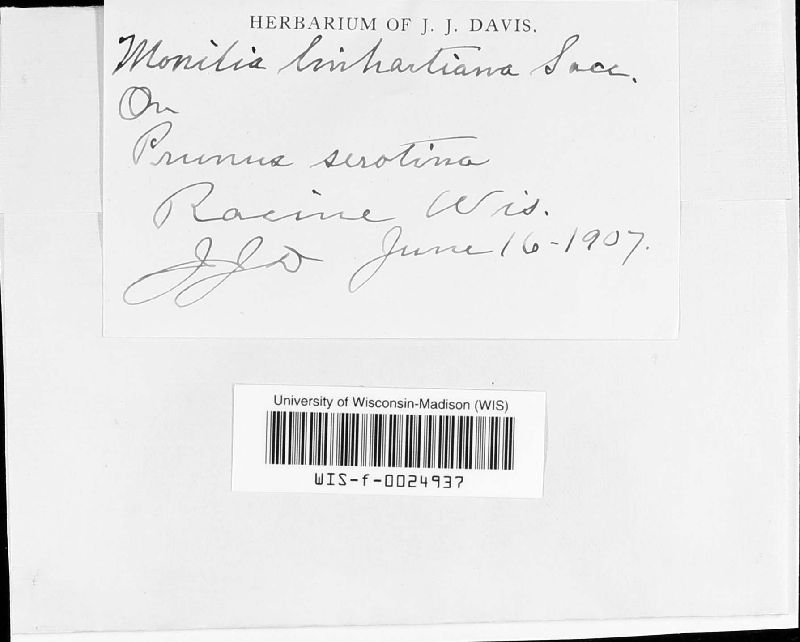 HERBARIUM OF J. J. DAVIS.
Monilia linhartiana Sacc.
On
Prunus serotina
Racine Wis.
JJD June 16-1907.
University of Wisconsin-Madison (WIS)
WIS-f-0024937